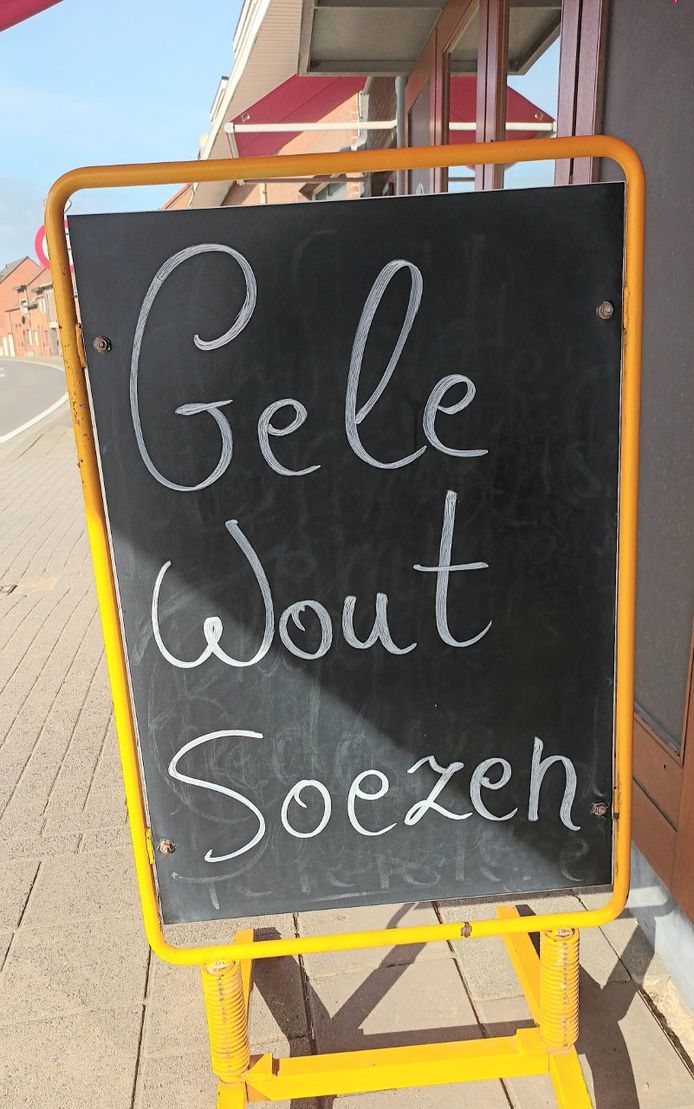 Gele
Wout
Soezen